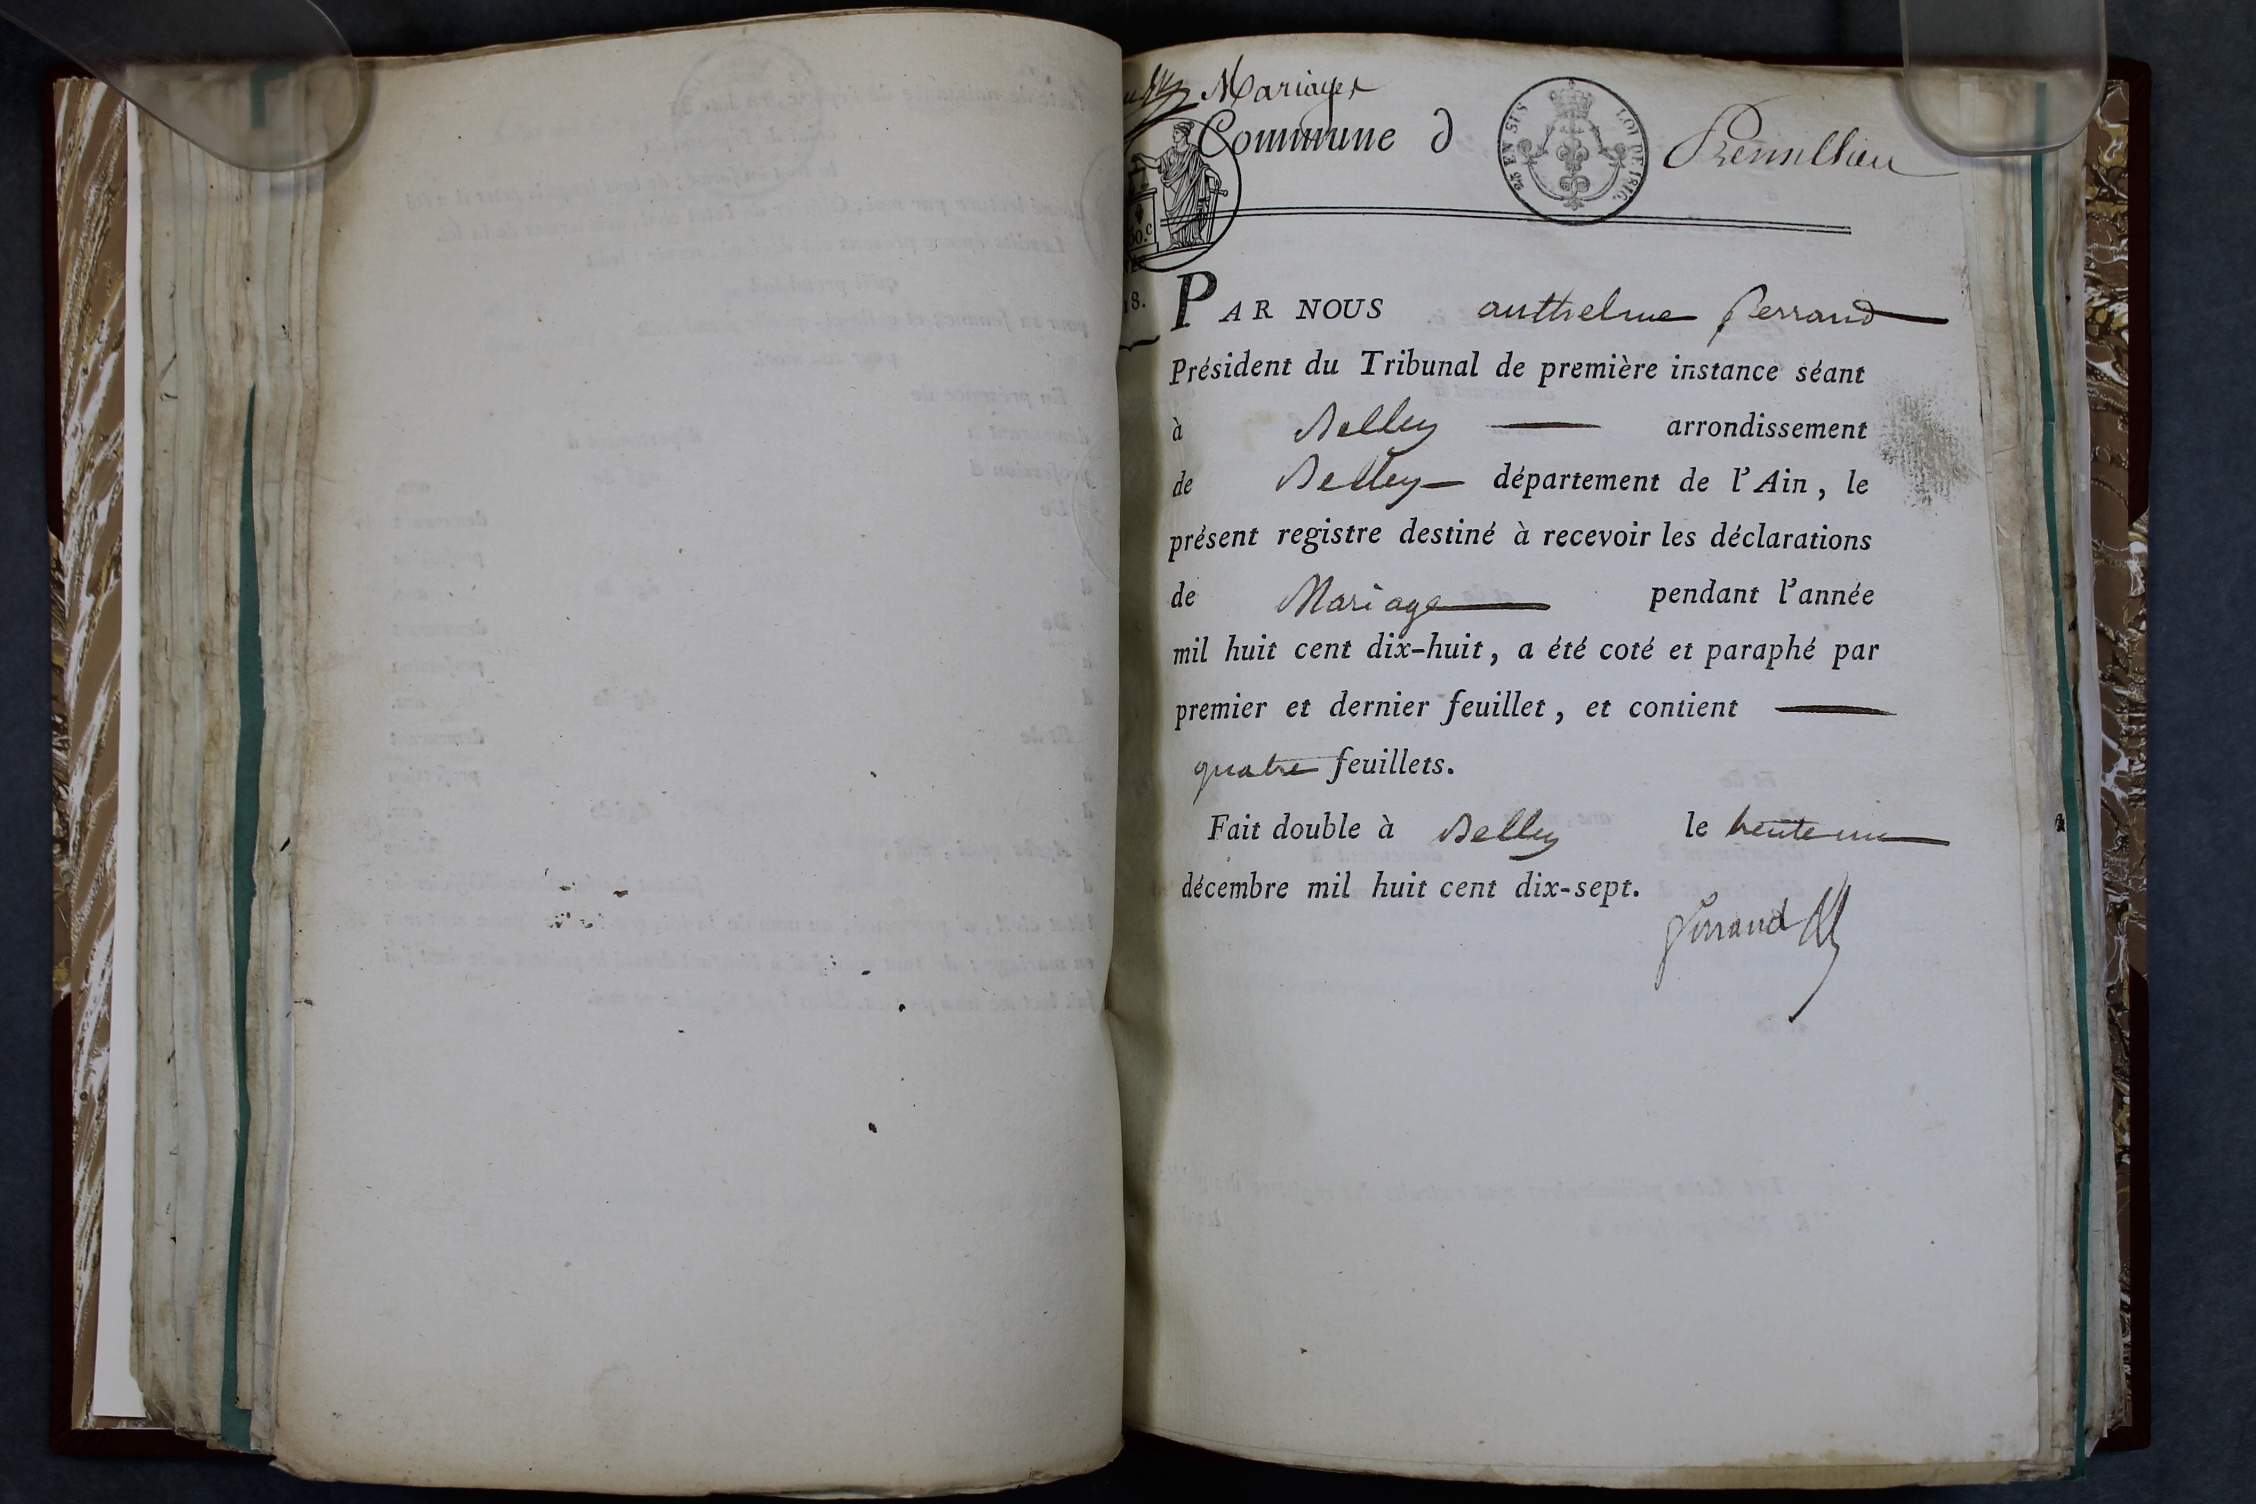 Mariages
Commune d
25 EN SUS
LOI DE 1816.
50.c
18.
PAR NOUS anthelme ferrand
Président du Tribunal de première instance séant
à Belley arrondissement
de Belley département de l'Ain, le
présent registre destiné à recevoir les déclarations
de Mariage pendant l'année
mil huit cent dix-huit, a été coté et paraphé par
premier et dernier feuillet, et contient
quatre feuillets.
Fait double à Belley le trente un
décembre mil huit cent dix-sept.
ferrand